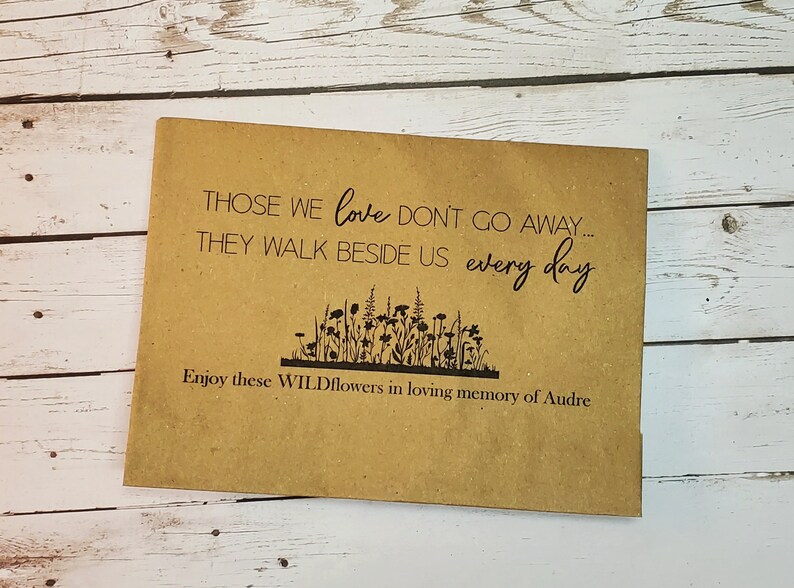 THOSE WE love DON'T GO AWAY...
THEY WALK BESIDE US every day
Enjoy these WILDflowers in loving memory of Audre